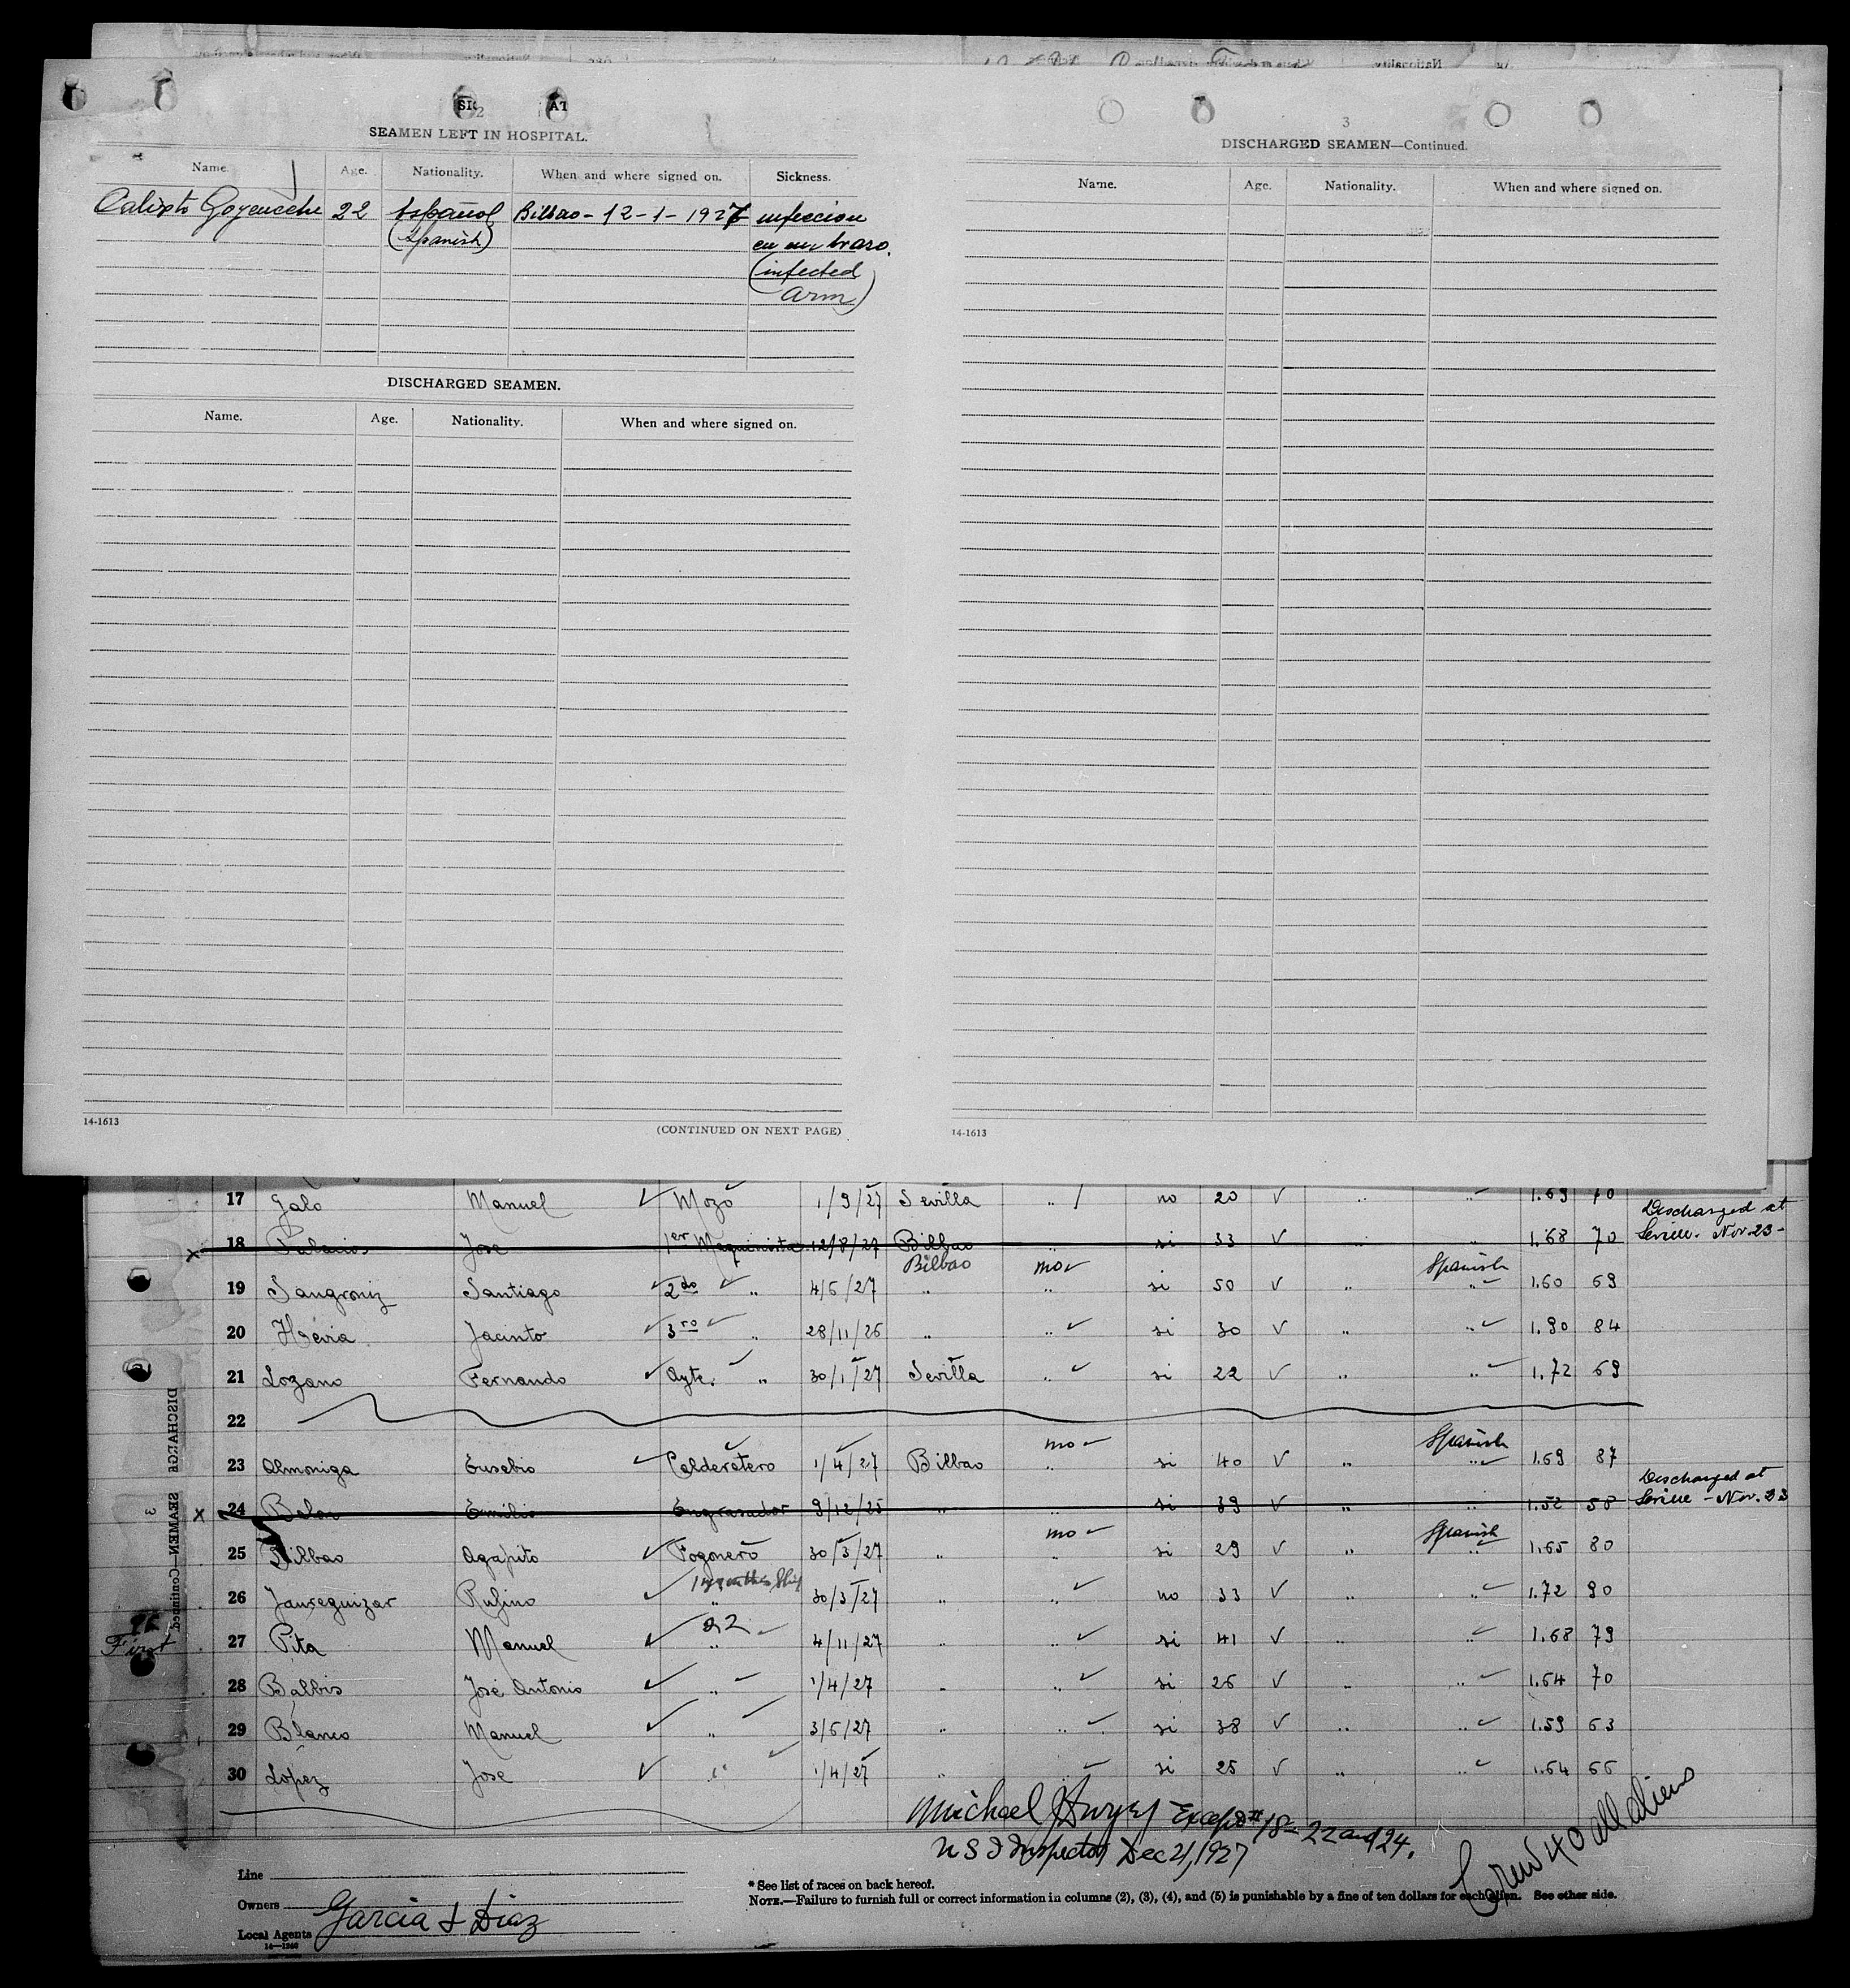 2
SEAMEN LEFT IN HOSPITAL.
Name. Age. Nationality. When and where signed on. Sickness.
Calixto Goyeneche 22 Español Bilbao - 12-1-1927 infeccion
(Spanish) en un braso.
(infected
arm)
DISCHARGED SEAMEN.
Name. Age. Nationality. When and where signed on.
14-1613 (CONTINUED ON NEXT PAGE)
3
DISCHARGED SEAMEN—Continued.
Name. Age. Nationality. When and where signed on.
14-1613
17 Galo Manuel ✓ Mozo 1/9/27 Sevilla .. / no 20 V .. .. 1.69 70
Discharged at
18 Palacios Jose 1er Maquinista 12/8/27 Bilbao .. si 33 V .. .. 1.68 70 Seville. Nov. 23-
Bilbao no ✓ Spanish
19 Sangroniz Santiago ✓ 2do ✓ .. 4/5/27 .. .. si 50 V .. .. 1.60 69
20 Hevia Jacinto ✓ 3ro ✓ .. 28/11/26 .. .. ✓ si 30 V .. .. ✓ 1.90 84
21 Lozano Fernando ✓ Ayte. .. 30/1/27 Sevilla .. ✓ si 22 V .. .. ✓ 1.72 69
22
no ✓ Spanish
23 Almoniga Eusebio ✓ Calderetero 1/4/27 Bilbao .. si 40 V .. .. ✓ 1.69 87
Discharged at
24 Emilio Engrasador 9/12/25 .. .. si 39 V .. .. 1.52 58 Seville - Nov. 23
no ✓ Spanish
25 Bilbao Agapito ✓ Fogonero 30/3/27 .. .. si 29 V .. .. 1.65 80
26 Jaureguizar Rufino ✓ .. 30/3/27 .. ✓ no 33 V .. .. ✓ 1.72 90
First 27 Pita Manuel ✓ .. 4/11/27 .. .. ✓ si 41 V .. .. ✓ 1.68 79
28 Balbis José Antonio ✓ .. ✓ 1/4/27 .. .. ✓ si 26 V .. .. ✓ 1.64 70
29 Blanco Manuel ✓ .. 3/5/27 .. .. ✓ si 38 V .. .. ✓ 1.59 63
30 Lopez Jose ✓ .. 1/4/27 .. ✓ si 25 V .. .. ✓ 1.64 66
DISCHARGE
SEAMEN—Continued.
3
Michael Except # 18 - 22 and 24.
U S I Inspector Dec 21, 1927
Crew 40 all aliens
Line
Owners
Local Agents Garcia & Diaz
14-1240
* See list of races on back hereof.
NOTE.—Failure to furnish full or correct information in columns (2), (3), (4), and (5) is punishable by a fine of ten dollars for each alien. See other side.